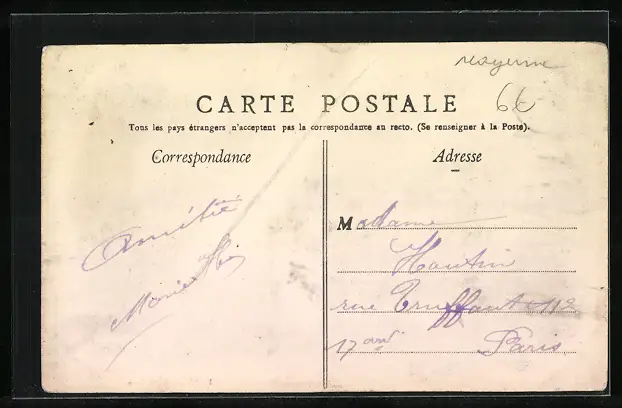 mayenne
CARTE POSTALE
6€
Tous les pays étrangers n'acceptent pas la correspondance au recto. (Se renseigner à la Poste).
Correspondance
Adresse
Amitié
Marie
Madame
Hautin
rue Truffaut
17
Paris